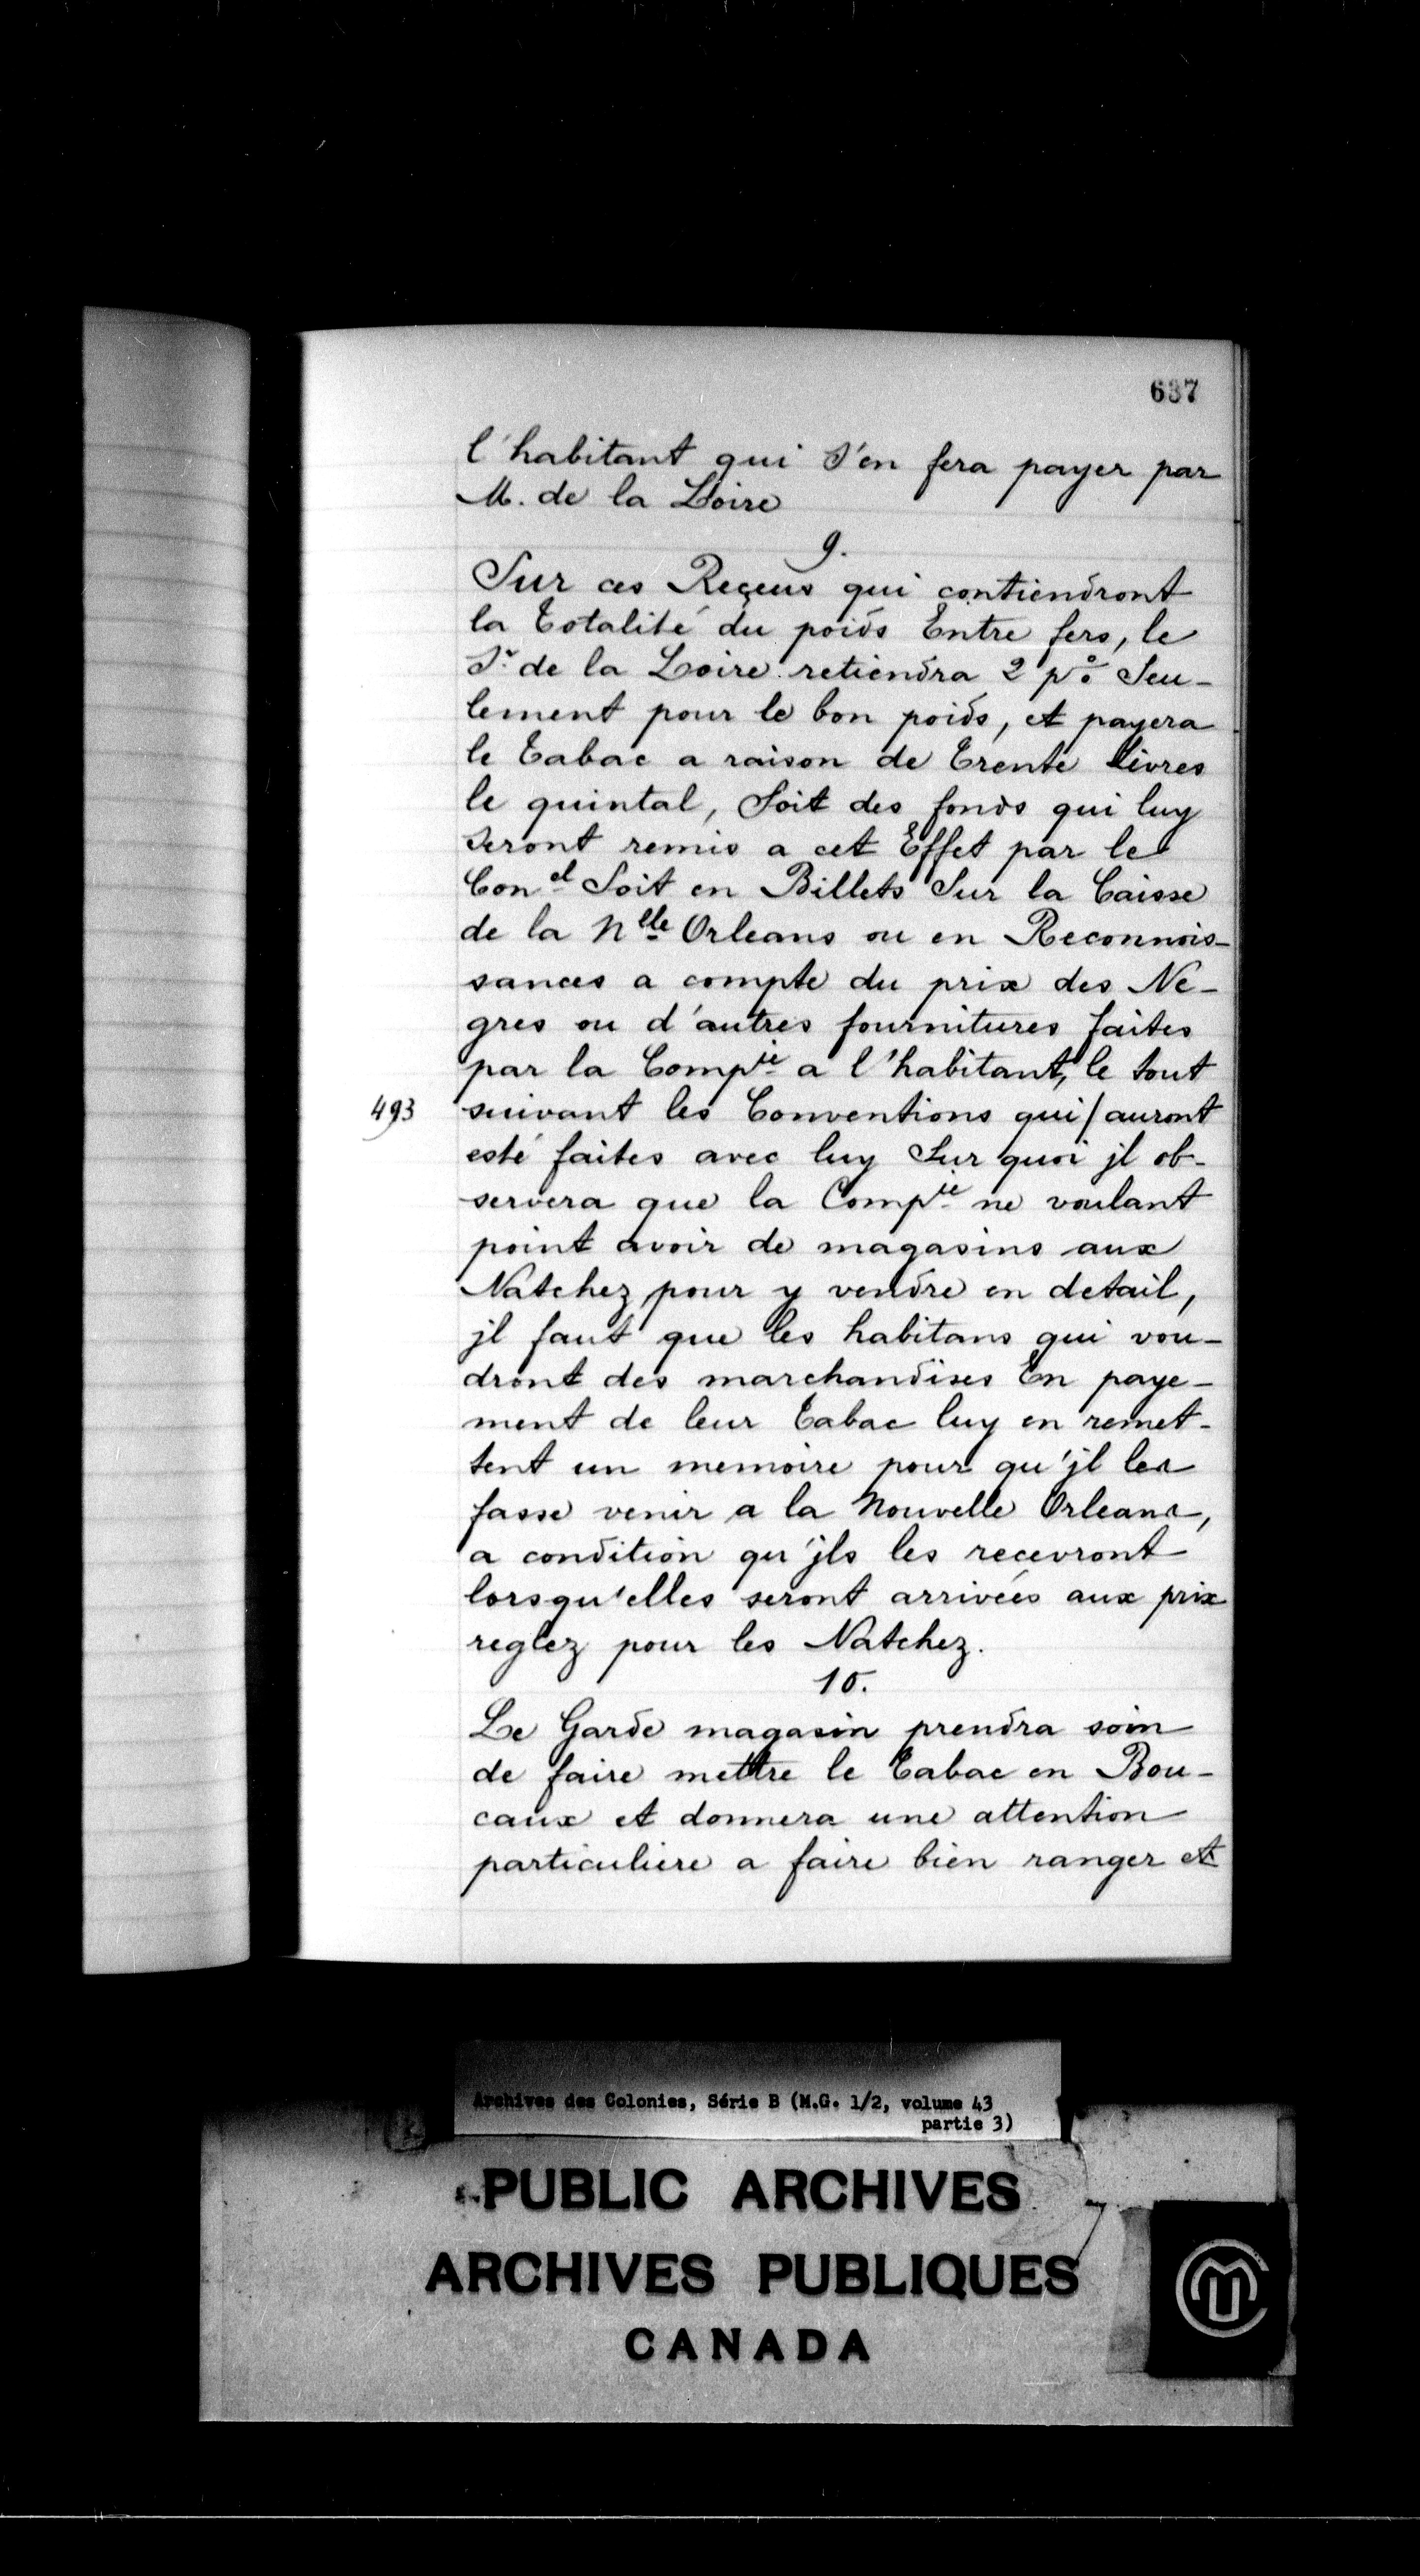 637
l'habitant qui s'en fera payer par
M. de la Loire
9.
Sur ces Reçeus qui contiendront
la Totalité du poids Entre fers, le
Sr. de la Loire retiendra 2 p% Seu-
lement pour le bon poids, et payera
le Tabac a raison de Trente Livres
le quintal, Soit des fonds qui luy
seront remis a cet Effet par le
Conel Soit en Billets Sur la Caisse
de la Nlle Orleans ou en Reconnois-
sances a compte du prix des Ne-
gres ou d'autres fournitures faites
par la Compie a l'habitant, le tout
493 suivant les Conventions qui/auront
esté faites avec luy Sur quoi jl ob-
servera que la Compie ne voulant
point avoir de magasins aux
Natchez pour y vendre en detail,
jl faut que les habitans qui vou-
dront des marchandises En paye-
ment de leur Tabac luy en remet-
tent un memoire pour qu'jl les
fasse venir a la Nouvelle Orleans,
a condition qu'jls les recevront
lorsqu'elles seront arrivées aux prix
reglez pour les Natchez.
10.
Le Garde magasin prendra soin
de faire mettre le Tabac en Bou-
caux et donnera une attention
particuliere a faire bien ranger et
Archives des Colonies, Série B (M.G. 1/2, volume 43
partie 3)
PUBLIC ARCHIVES
ARCHIVES PUBLIQUES
CANADA